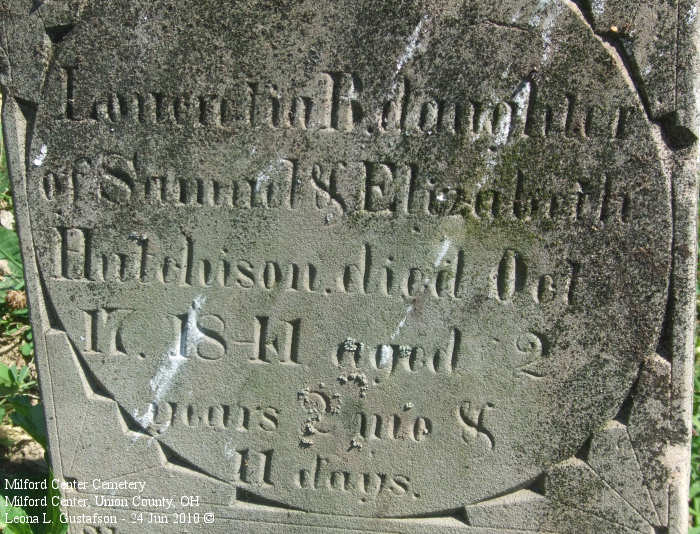 Loucretia B. daughter
of Samuel & Elizabeth
Hutchison. died Oct
17. 1841 aged 2
years 2 mo &
11 days.
Milford Center Cemetery
Milford Center, Union County, OH
Leona L. Gustafson - 24 Jun 2010 ©